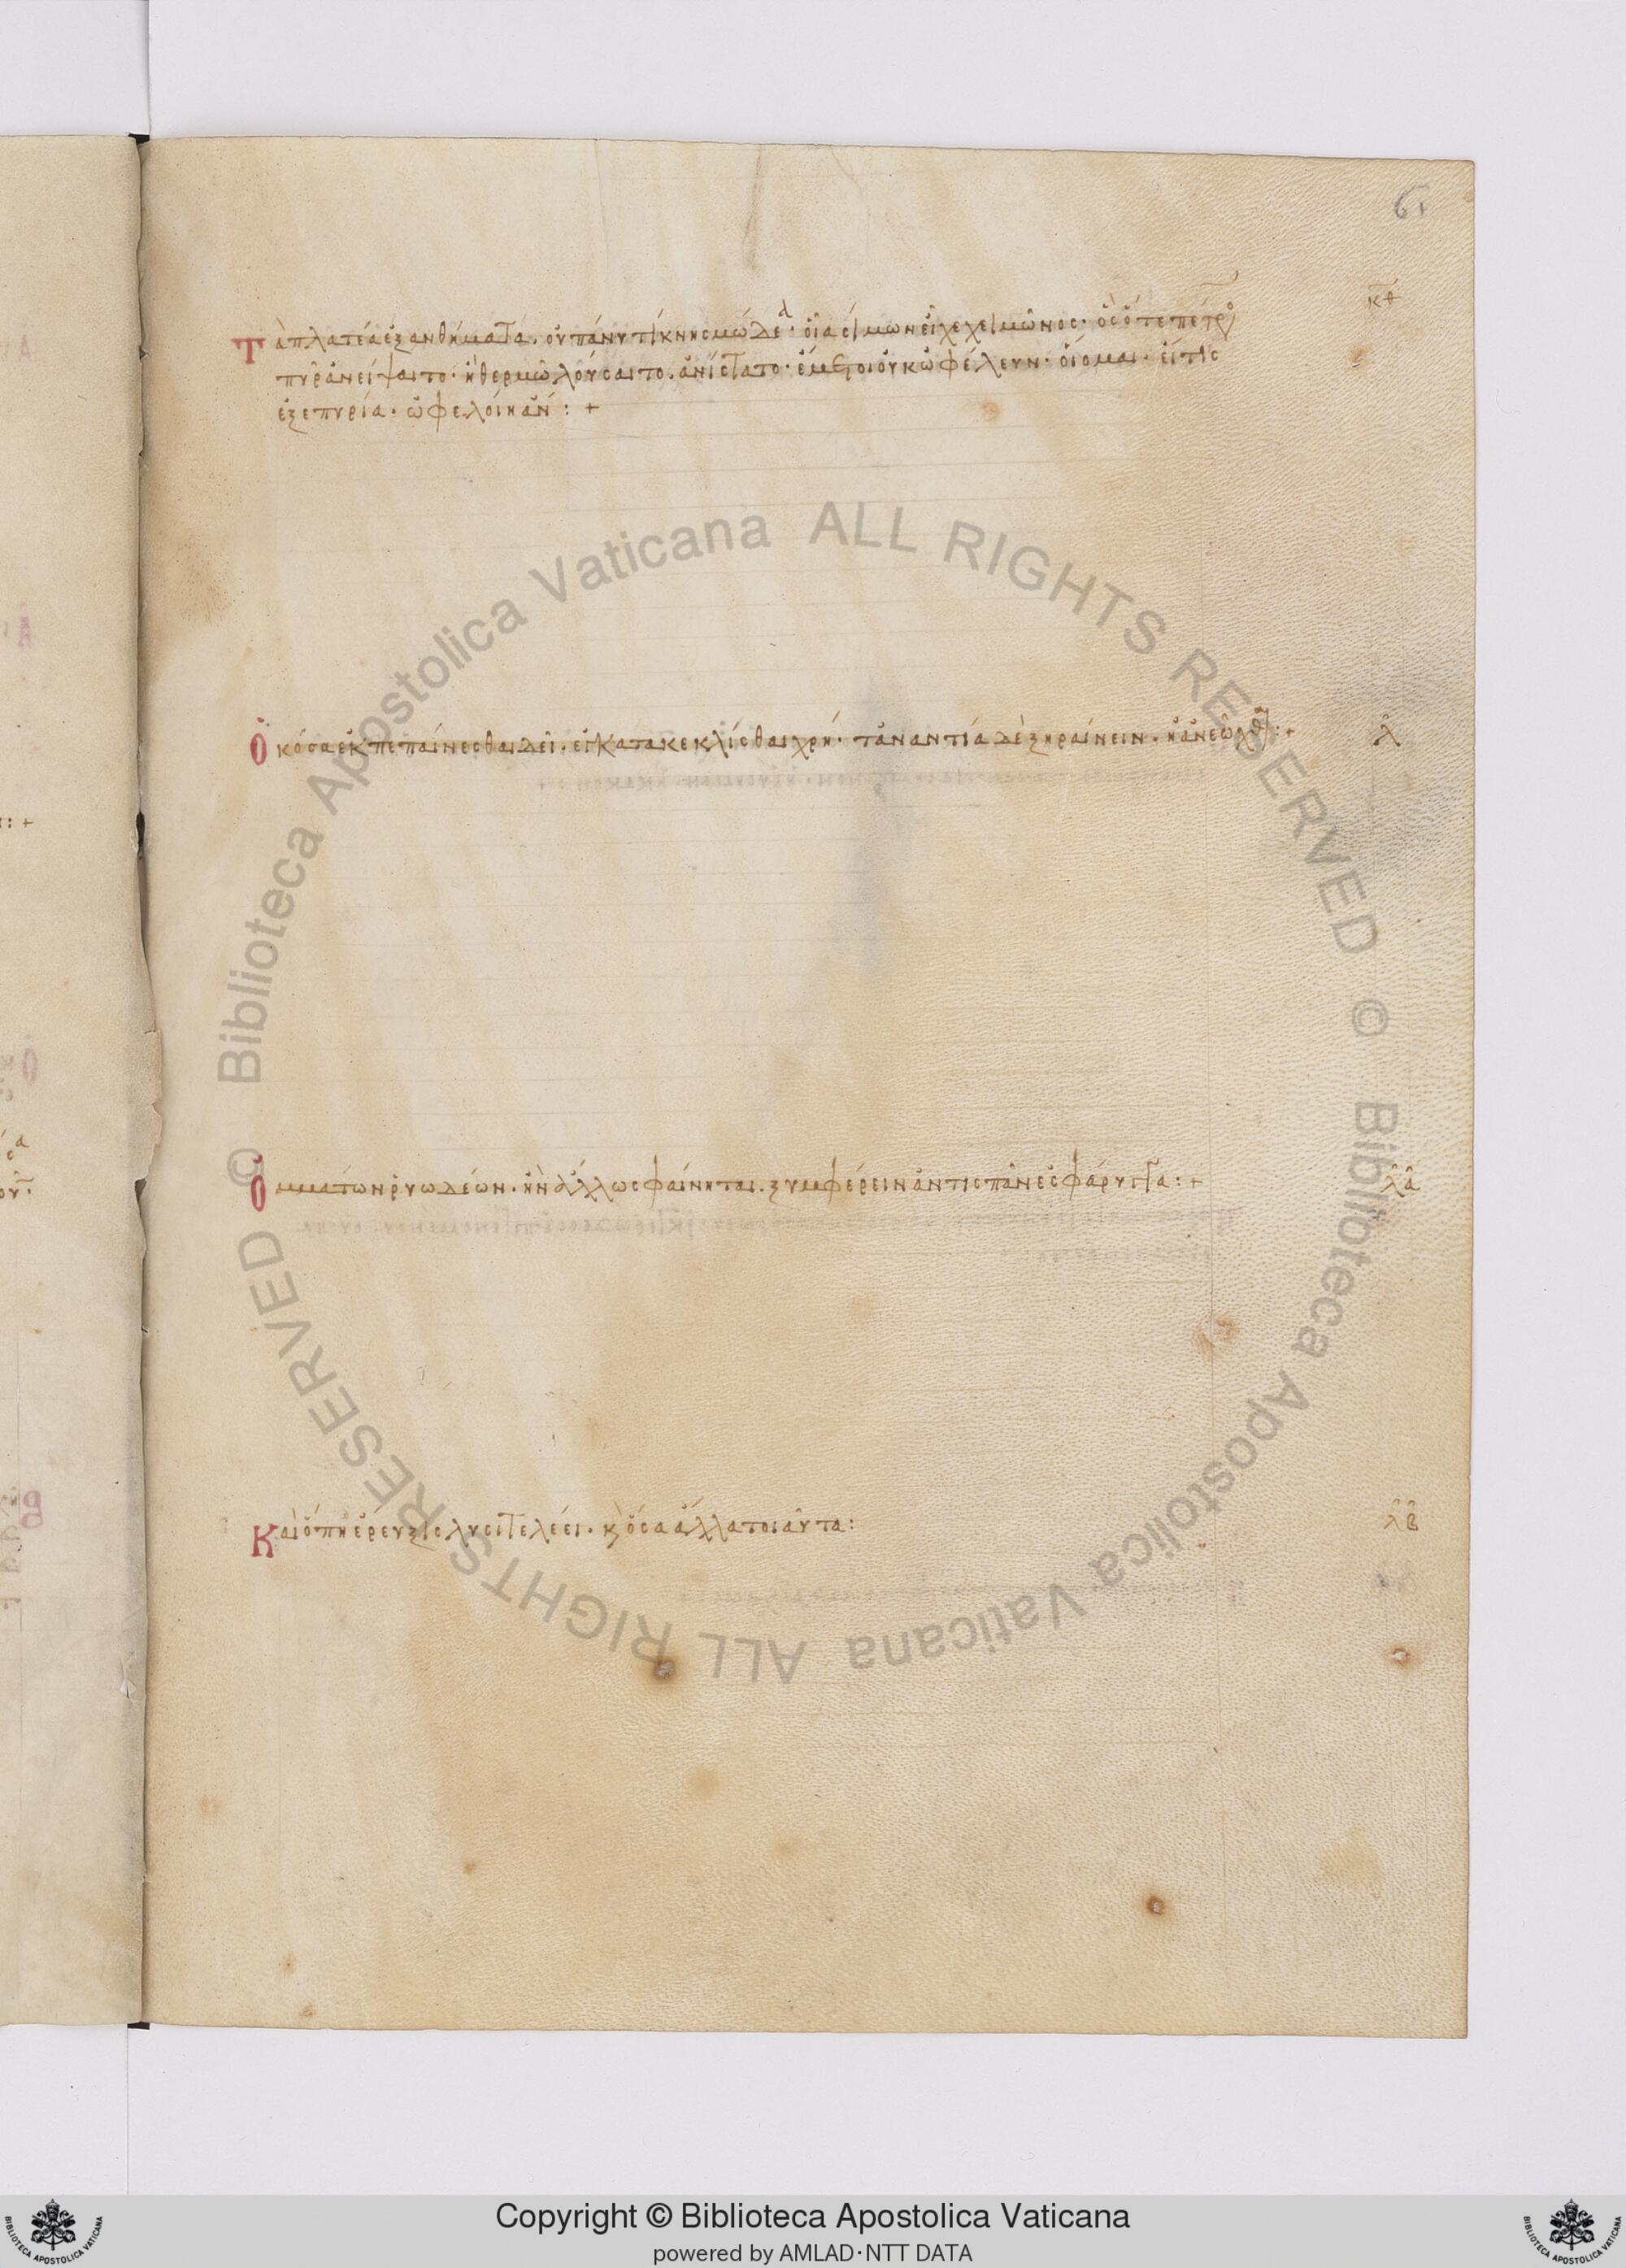 61
κθ
Τὰ πλατέα ἐξανθήματα. οὐ πάνυ τι κνησμώδεα· οἷα σίμων εἶχε χειμῶνος· ὃς ὅτε πρὸς
πῦρ ἀνείψαιτο· ἢ θερμῶ λούσαιτο. ἀνίστατο· ἔμετοι οὐκ ὠφέλευν· οἴομαι· εἴ τις
ἐξεπυρία· ὠφελοίη ἄν : +
Ὁκόσα ἐκπεπαίνεσθαι δεῖ. εἰ κατακεκλίσθαι χρή· τἀναντία δὲ ξηραίνειν. κἂν ἑῶλθη : +
λ
Ὀμμάτων ῥυωδέων. ἢν ἄλλως φαίνηται. ξυμφέρειν ἀντισπᾶν ἐς φάρυγγα : +
λα
Καὶ ὅπη ἔρευξις λυσιτελέει. κ ὅσα ἄλλα τοιαῦτα :
λβ
© Biblioteca Apostolica Vaticana ALL RIGHTS RESERVED © Biblioteca Apostolica Vaticana ALL RIGHTS RESERVED
Copyright © Biblioteca Apostolica Vaticana
powered by AMLAD·NTT DATA
BIBLIOTECA APOSTOLICA VATICANA
BIBLIOTECA APOSTOLICA VATICANA